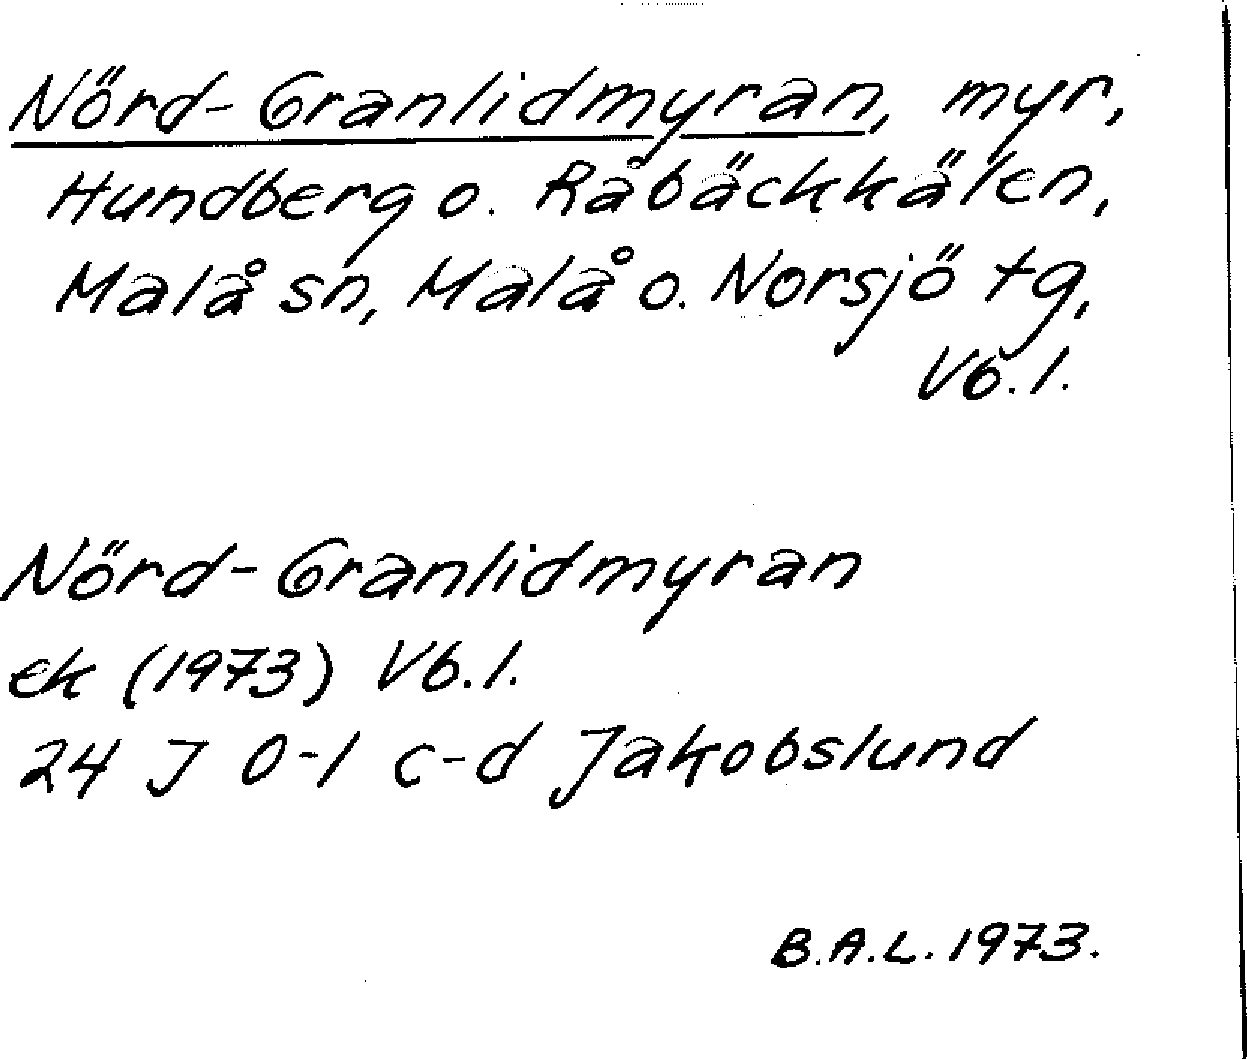 Nörd-Granlidmyran, myr,
Hundberg o. Råbäckkälen,
Malå sn, Malå o. Norsjö tg,
Vb. l.
Nörd-Granlidmyran
ek (1973) Vb. l.
24 J 0-1 c-d Jakobslund
B.A.L. 1973.